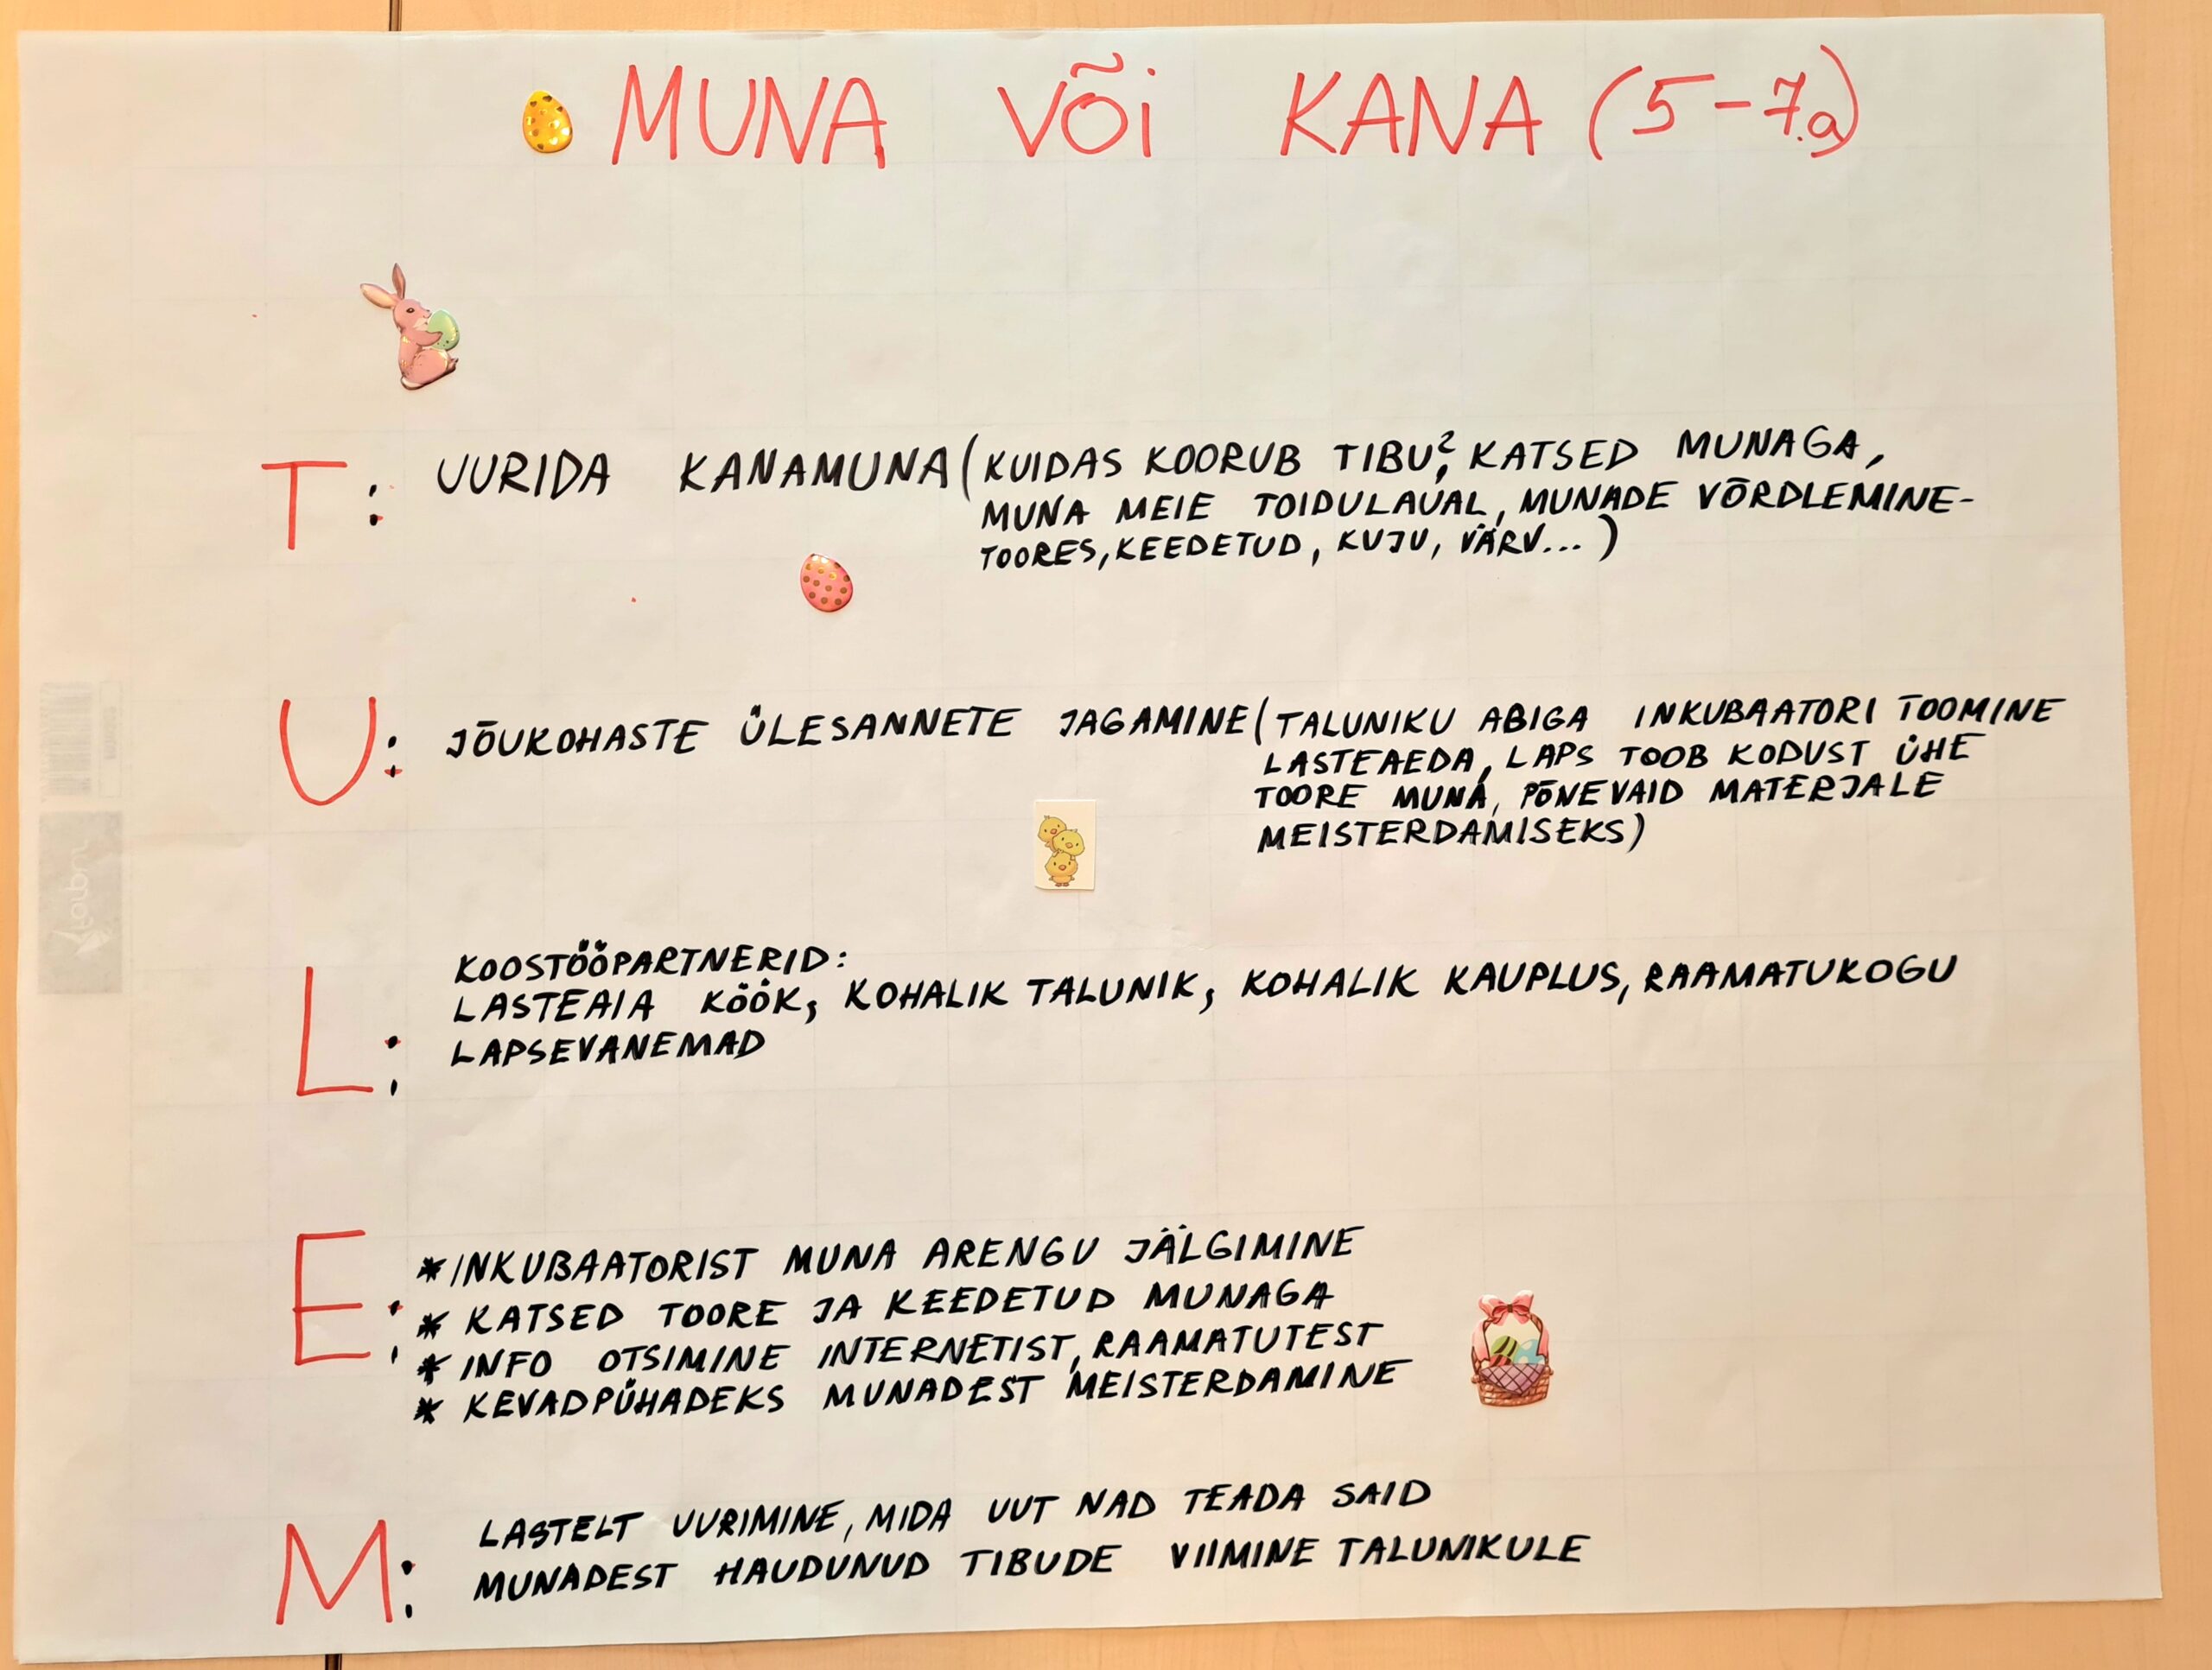 MUNA VÕI KANA (5-7.a)
T: UURIDA KANAMUNA (KUIDAS KOORUB TIBU?, KATSED MUNAGA,
MUNA MEIE TOIDULAUAL, MUNADE VÕRDLEMINE-
TOORES, KEEDETUD, KUJU, VÄRV...)
U: JÕUKOHASTE ÜLESANNETE JAGAMINE (TALUNIKU ABIGA INKUBAATORI TOOMINE
LASTEAEDA, LAPS TOOB KODUST ÜHE
TOORE MUNA, PÕNEVAID MATERJALE
MEISTERDAMISEKS)
KOOSTÖÖPARTNERID:
L: LASTEAIA KÖÖK, KOHALIK TALUNIK, KOHALIK KAUPLUS, RAAMATUKOGU
LAPSEVANEMAD
E: * INKUBAATORIST MUNA ARENGU JÄLGIMINE
* KATSED TOORE JA KEEDETUD MUNAGA
* INFO OTSIMINE INTERNETIST, RAAMATUTEST
* KEVADPÜHADEKS MUNADEST MEISTERDAMINE
M: LASTELT UURIMINE, MIDA UUT NAD TEADA SAID
MUNADEST HAUDUNUD TIBUDE VIIMINE TALUNIKULE